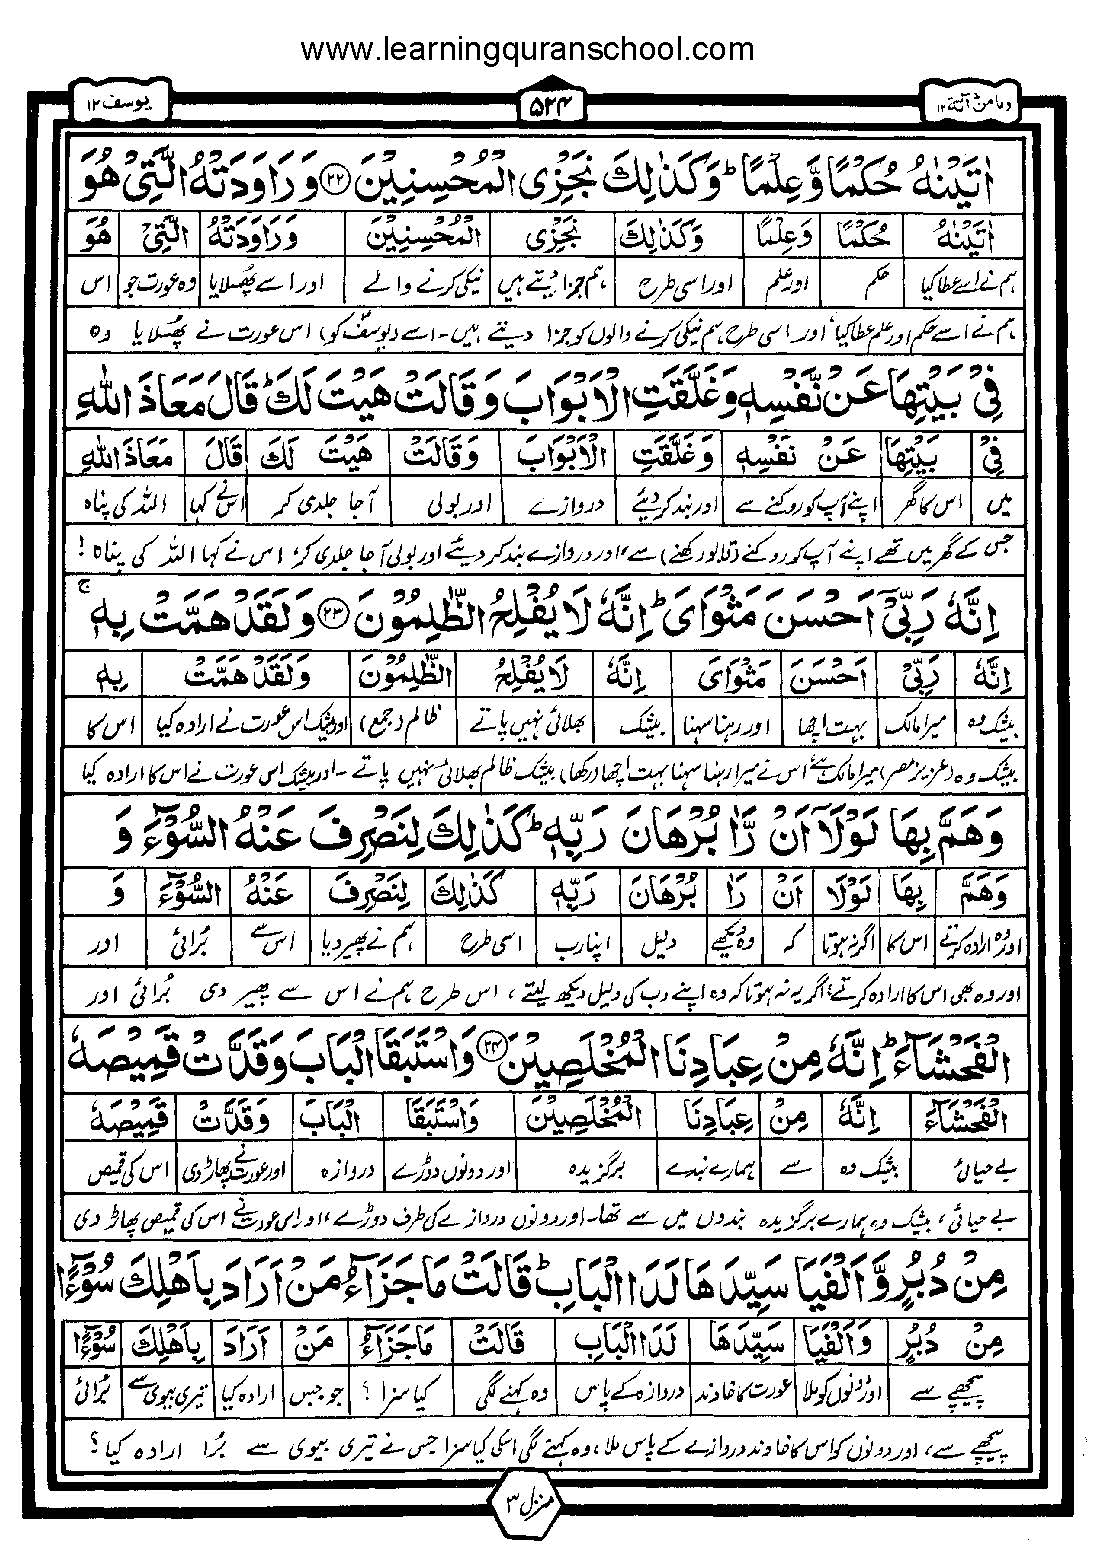 www.learningquranschool.com
وما من دآبة ١٢
٥٢٤
يوسف ١٢
اٰتَيْنٰهُ حُكْمًا وَّعِلْمًا ؕ وَكَذٰلِكَ نَجْزِى الْمُحْسِنِيْنَ ﴿٢٢﴾ وَرَاوَدَتْهُ الَّتِىْ هُوَ
اٰتَيْنٰهُ حُكْمًا وَّعِلْمًا وَكَذٰلِكَ نَجْزِى الْمُحْسِنِيْنَ وَرَاوَدَتْهُ الَّتِىْ هُوَ
ہم نے اسے عطا کیا حکم اور علم اور اسی طرح ہم جزا دیتے ہیں نیکی کرنے والے اور اسے پھسلایا وہ عورت جو اس
ہم نے اسے حکم اور علم عطا کیا، اور اسی طرح ہم نیکی کرنے والوں کو جزا دیتے ہیں۔ اسے (یوسفؑ کو) اس عورت نے پھسلایا وہ
فِىْ بَيْتِهَا عَنْ نَّفْسِهٖ وَغَلَّقَتِ الْاَبْوَابَ وَقَالَتْ هَيْتَ لَكَ ؕ قَالَ مَعَاذَ اللّٰهِ
فِىْ بَيْتِهَا عَنْ نَّفْسِهٖ وَغَلَّقَتِ الْاَبْوَابَ وَقَالَتْ هَيْتَ لَكَ قَالَ مَعَاذَ اللّٰهِ
میں اس کا گھر اپنے آپ کو روکنے سے اور بند کر دیئے دروازے اور بولی آجا جلدی کر اس نے کہا اللہ کی پناہ
جس کے گھر میں تھے اپنے آپ کو روکنے (قابو رکھنے) سے، اور دروازے بند کر دیئے اور بولی آجا جلدی کر، اس نے کہا اللہ کی پناہ!
اِنَّهٗ رَبِّىْۤ اَحْسَنَ مَثْوَاىَ ؕ اِنَّهٗ لَا يُفْلِحُ الظّٰلِمُوْنَ ﴿٢٣﴾ وَلَقَدْ هَمَّتْ بِهٖ ۚ
اِنَّهٗ رَبِّىْۤ اَحْسَنَ مَثْوَاىَ اِنَّهٗ لَا يُفْلِحُ الظّٰلِمُوْنَ وَلَقَدْ هَمَّتْ بِهٖ
بیشک وہ میرا مالک بہت اچھا اور رہنا سہنا بیشک بھلائی نہیں پاتے ظالم (جمع) اور بیشک اس عورت نے ارادہ کیا اس کا
بیشک وہ (عزیز مصر) میرا مالک ہے، اس نے میرا رہنا سہنا بہت اچھا رکھا، بیشک ظالم بھلائی نہیں پاتے۔ اور بیشک اس عورت نے اس کا ارادہ کیا
وَهَمَّ بِهَا لَوْلَاۤ اَنْ رَّاٰ بُرْهَانَ رَبِّهٖ ؕ كَذٰلِكَ لِنَصْرِفَ عَنْهُ السُّوْٓءَ وَ
وَهَمَّ بِهَا لَوْلَا اَنْ رَاٰ بُرْهَانَ رَبِّهٖ كَذٰلِكَ لِنَصْرِفَ عَنْهُ السُّوْٓءَ وَ
اور وہ ارادہ کرتے اس کا اگر نہ ہوتا کہ وہ دیکھے دلیل اپنا رب اسی طرح ہم نے پھیر دیا اس سے بُرائی اور
اور وہ بھی اس کا ارادہ کرتے، اگر یہ نہ ہوتا کہ وہ اپنے رب کی دلیل دیکھ لیتے، اس طرح ہم نے اس سے پھیر دی بُرائی اور
الْفَحْشَآءَ ؕ اِنَّهٗ مِنْ عِبَادِنَا الْمُخْلَصِيْنَ ﴿٢٤﴾ وَاسْتَبَقَا الْبَابَ وَقَدَّتْ قَمِيْصَهٗ
الْفَحْشَآءَ اِنَّهٗ مِنْ عِبَادِنَا الْمُخْلَصِيْنَ وَاسْتَبَقَا الْبَابَ وَقَدَّتْ قَمِيْصَهٗ
بے حیائی بیشک وہ سے ہمارے بندے برگزیدہ اور دونوں دوڑے دروازہ اور عورت نے پھاڑ دی اس کی قمیص
بے حیائی، بیشک وہ ہمارے برگزیدہ بندوں میں سے تھا۔ اور دونوں دروازے کی طرف دوڑے، اور اس عورت نے اس کی قمیص پھاڑ دی
مِنْ دُبُرٍ وَّاَلْفَيَا سَيِّدَهَا لَدَا الْبَابِ ؕ قَالَتْ مَا جَزَآءُ مَنْ اَرَادَ بِاَهْلِكَ سُوْٓءًا
مِنْ دُبُرٍ وَّاَلْفَيَا سَيِّدَهَا لَدَا الْبَابِ قَالَتْ مَا جَزَآءُ مَنْ اَرَادَ بِاَهْلِكَ سُوْٓءًا
پیچھے سے اور دونوں کو ملا عورت کا خاوند دروازہ کے پاس وہ کہنے لگی کیا سزا؟ جو جس ارادہ کیا تیری بیوی سے بُرائی
پیچھے سے، اور دونوں کو اس کا خاوند دروازے کے پاس ملا، وہ کہنے لگی اس کی کیا سزا جس نے تیری بیوی سے بُرا ارادہ کیا؟
منزل ٣